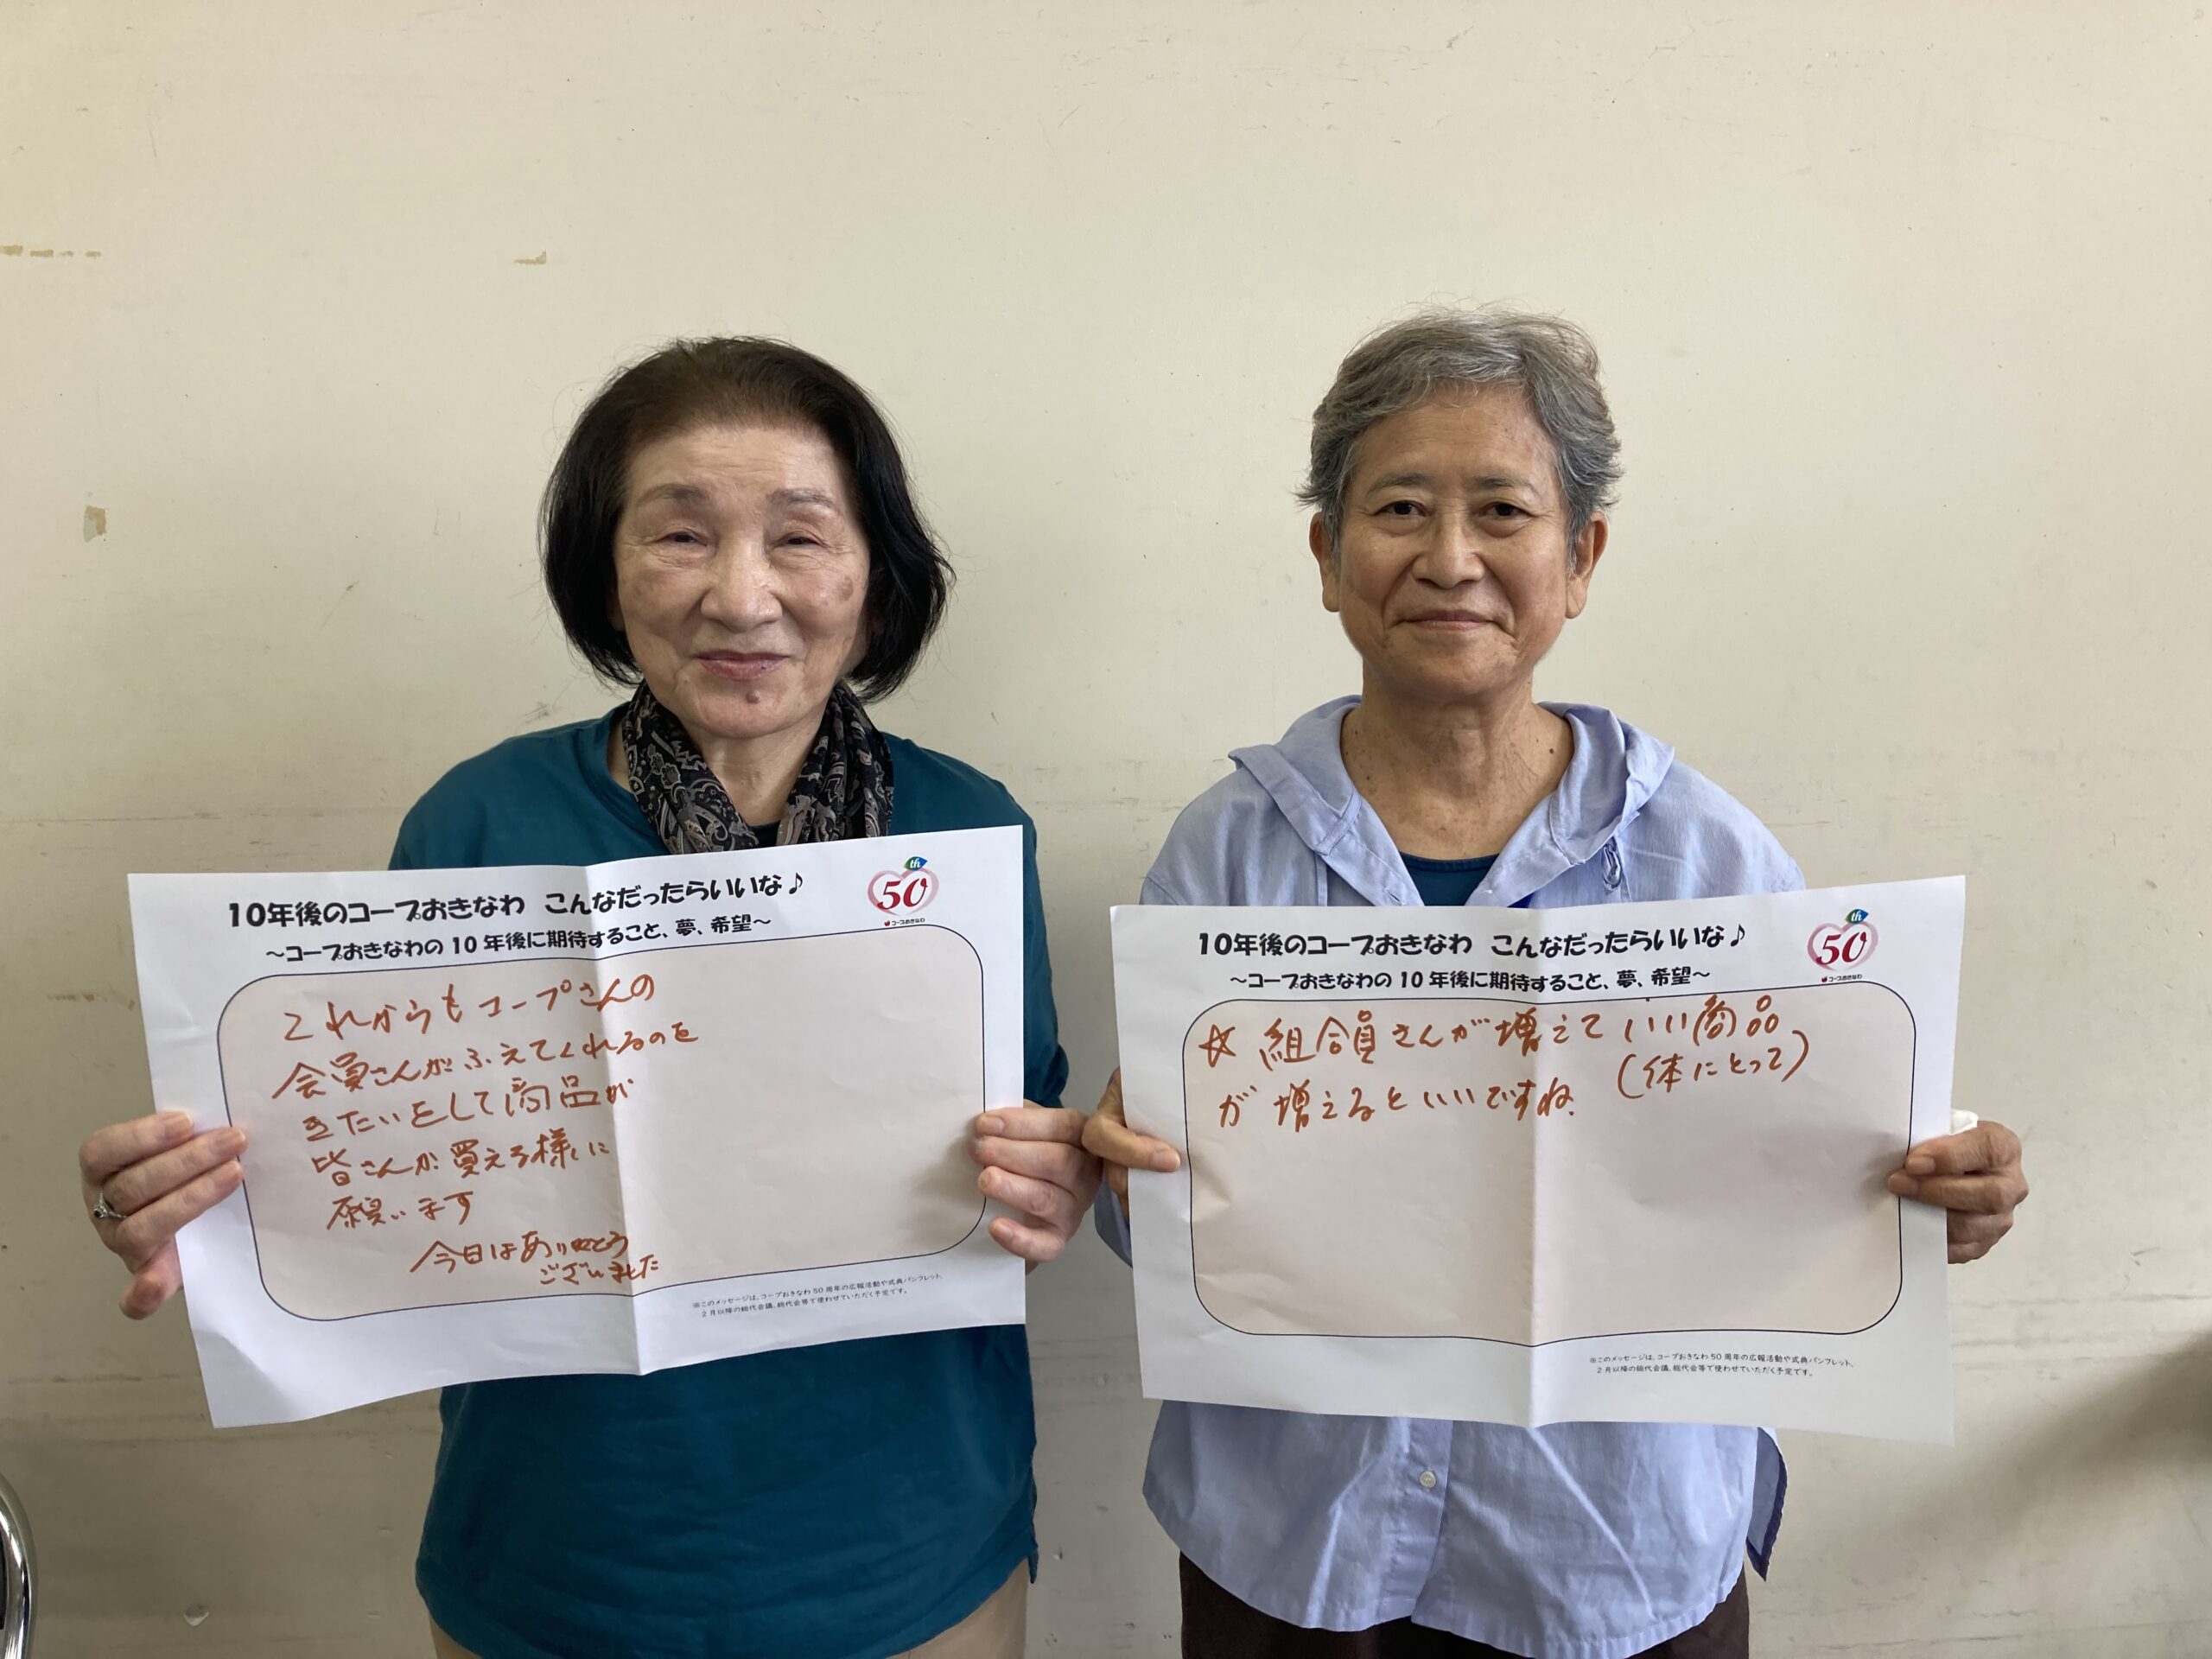 10年後のコープおきなわ こんなだったらいいな♪
～コープおきなわの10年後に期待すること、夢、希望～
50th
コープおきなわ
これからもコープさんの
会員さんがふえてくれるのを
きたいをして商品が
皆さんが買える様に
願います
今日はありがとう
ございました
※このメッセージは、コープおきなわ50周年の広報活動や式典パンフレット、
2月以降の総代会議、総代会等で使わせていただく予定です。
10年後のコープおきなわ こんなだったらいいな♪
～コープおきなわの10年後に期待すること、夢、希望～
50th
コープおきなわ
☆組合員さんが増えていい商品
(体にとって)
が増えるといいですね。
※このメッセージは、コープおきなわ50周年の広報活動や式典パンフレット、
2月以降の総代会議、総代会等で使わせていただく予定です。